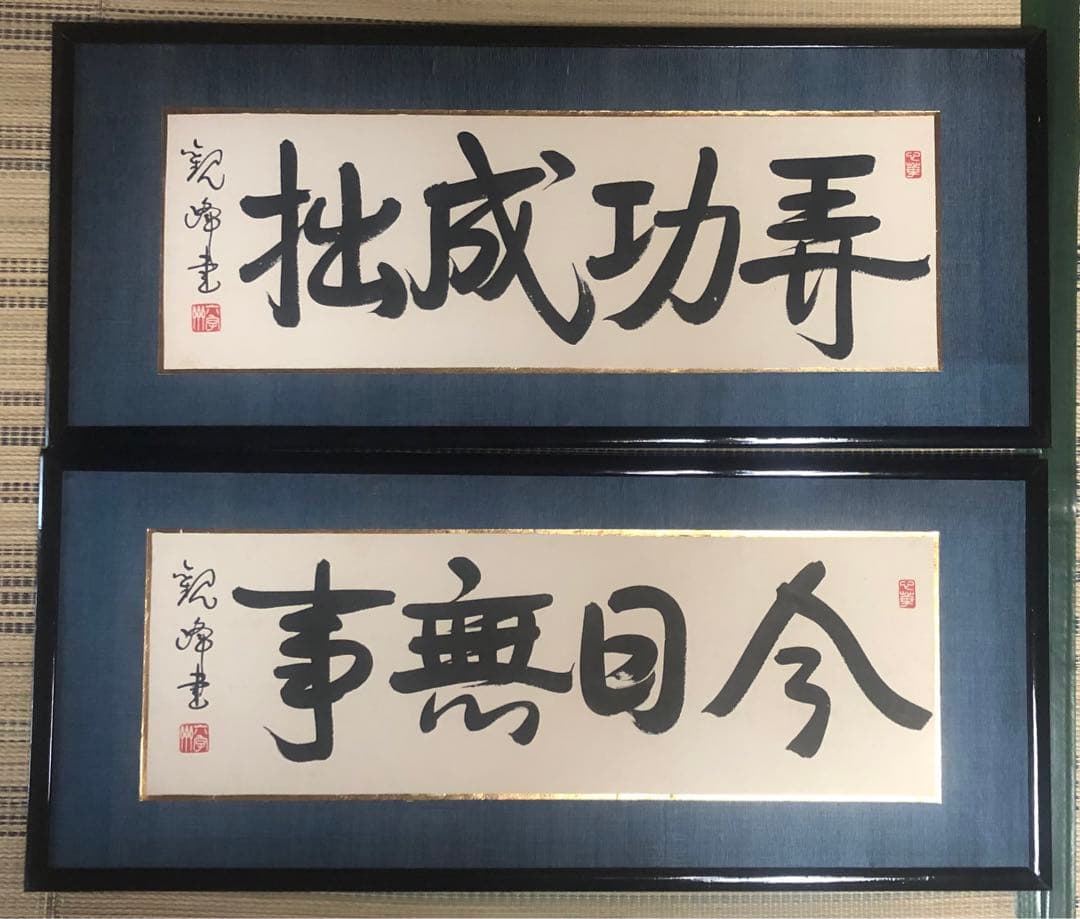 弄功成拙
観峰書
今日無事
観峰書